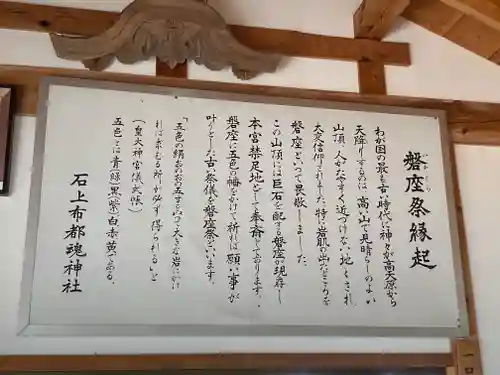 磐座祭縁起
わが国の最も古い時代に神々が高天原から
天降りするのは、高い山で見晴らしのよい
山頂、人がたやすく近づけない地とされ
大変信仰されました。特に岩肌の出たところを
磐座といって畏敬しました。
この山頂には巨石を配する磐座が現存し
本宮禁足地として奉斎しております。
磐座に五色の幡をかけて祈れば願い事が
叶うとした古い祭儀を磐座祭といいます。
「五色の絹おのおの五すんづつ大きな岩にかけ
れば求むる所が必ず得られる」と
(皇大神宮儀式帳)
五色とは青(緑)黒(紫)白赤黄である。
石上布都魂神社